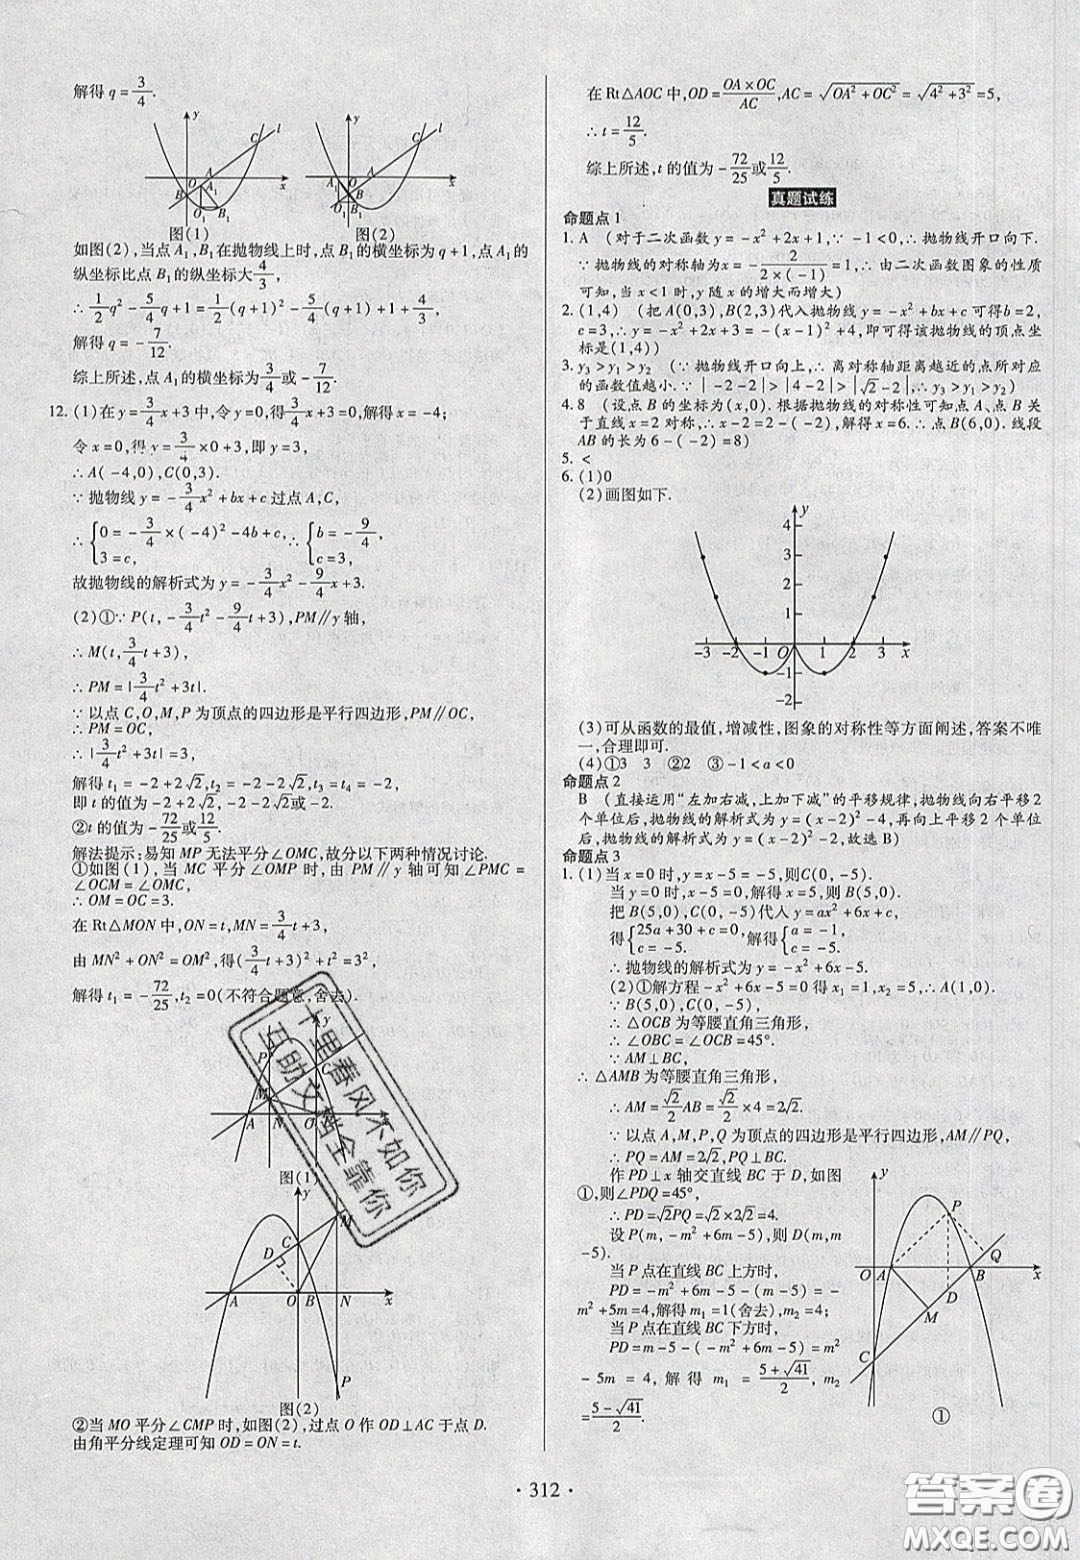 解得 q = 3/4.
y
C
l
A
O
A₁
x
B
O₁
B₁
图(1)
y
C
l
A
O
A₁
x
B
O₁
B₁
图(2)
如图(2),当点 A₁,B₁在抛物线上时,点 B₁的横坐标为 q+1,点 A₁的
纵坐标比点 B₁的纵坐标大4/3,
∴ 1/2 q² - 5/4 q + 1 = 1/2 (q+1)² - 5/4 (q+1) + 1 + 4/3,
解得 q = -7/12.
综上所述,点 A₁的横坐标为3/4或-7/12.
12. (1)在 y = 3/4 x+3 中,令 y=0,得3/4 x+3=0,解得 x=-4;
令 x=0,得 y = 3/4 ×0+3,即 y=3,
∴ A(-4,0),C(0,3).
∵ 抛物线 y = -3/4 x² + bx + c 过点 A,C,
∴ { 0 = -3/4 ×(-4)² - 4b + c, 3 = c, ∴ { b = -9/4, c = 3,
故抛物线的解析式为 y = -3/4 x² - 9/4 x + 3.
(2)①∵ P(t, -3/4 t² - 9/4 t + 3),PM∥y 轴,
∴ M(t, 3/4 t + 3),
∴ PM = |3/4 t² + 3t|.
∵ 以点 C,O,M,P 为顶点的四边形是平行四边形,PM∥OC,
∴ PM = OC,
∴ |3/4 t² + 3t| = 3,
解得 t₁ = -2+2√2, t₂ = -2-2√2, t₃ = t₄ = -2,
即 t 的值为 -2+2√2, -2-2√2或-2.
②t 的值为 -72/25或12/5.
解法提示:易知 MP 无法平分∠OMC,故分以下两种情况讨论.
①如图(1),当 MC 平分∠OMP 时,由 PM∥y 轴可知∠PMC =
∠OCM = ∠OMC,
∴ OM = OC = 3.
在 Rt△MON 中,ON = t,MN = 3/4 t + 3,
由 MN² + ON² = OM²,得(3/4 t+3)² + t² = 3²,
解得 t₁ = -72/25, t₂ = 0(不符合题意,舍去).
y
P
C
M
A
N
O
图(1)
十里春风不如你
互助文档全靠你
y
M
C
D
A
O
B
N
x
P
图(2)
②当 MO 平分∠CMP 时,如图(2),过点 O 作 OD⊥AC 于点 D.
由角平分线定理可知 OD = ON = t.
在 Rt△AOC 中,OD = OA×OC/AC, AC = √(OA²+OC²) = √(4²+3²) = 5,
∴ t = 12/5.
综上所述,t 的值为 -72/25或12/5.
真题试练
命题点 1
1. A (对于二次函数 y = -x² + 2x + 1,∵ -1<0,∴ 抛物线开口向下.
∵ 抛物线的对称轴为 x = -2/(2×(-1)) = 1,∴ 由二次函数图象的性质
可知,当 x<1 时,y 随 x 的增大而增大)
2. (1,4) (把 A(0,3),B(2,3)代入抛物线 y = -x² + bx + c 可得 b=2,
c=3,∴ y = -x² + 2x + 3 = -(x-1)² + 4,即可得该抛物线的顶点坐
标是(1,4))
3. y₃>y₁>y₂ (∵ 抛物线开口向上,∴ 离对称轴距离越近的点所对应
的函数值越小.∵ |-2-2|>|4-2|>|√2-2|,∴ y₃>y₁>y₂)
4. 8 (设点 B 的坐标为(x,0). 根据抛物线的对称性可知点 A、点 B 关
于直线 x=2 对称,∴ x-2=2-(-2),解得 x=6.∴ 点 B(6,0). 线段
AB 的长为 6-(-2)=8)
5. <
6. (1)0
(2)画图如下.
y
4
3
2
1
-3 -2 -1 O 1 2 3 x
-1
-2
(3)可从函数的最值,增减性,图象的对称性等方面阐述,答案不唯
一,合理即可.
(4)①3 3 ②2 ③-1<a<0
命题点 2
B (直接运用“左加右减,上加下减”的平移规律,抛物线向右平移 2
个单位后,抛物线的解析式为 y=(x-2)²-4,再向上平移 2 个单位
后,抛物线的解析式为 y=(x-2)²-2,故选 B)
命题点 3
1. (1)当 x=0 时,y=x-5=-5,则 C(0,-5).
当 y=0 时,x-5=0,解得 x=5,则 B(5,0).
把 B(5,0),C(0,-5)代入 y=ax²+6x+c,
得 { 25a+30+c=0, c=-5. 解得 { a=-1, c=-5.
∴ 抛物线的解析式为 y=-x²+6x-5.
(2)①解方程-x²+6x-5=0 得 x₁=1,x₂=5,∴ A(1,0).
∵ B(5,0),C(0,-5),
∴ △OCB 为等腰直角三角形,
∴ ∠OBC=∠OCB=45°.
∵ AM⊥BC,
∴ △AMB 为等腰直角三角形,
∴ AM = √2/2 AB = √2/2 ×4 = 2√2.
∵ 以点 A,M,P,Q 为顶点的四边形是平行四边形,AM∥PQ,
∴ PQ=AM=2√2,PQ⊥BC.
作 PD⊥x 轴交直线 BC 于 D,如图
①,则∠PDQ=45°,
∴ PD=√2PQ=√2×2√2=4.
设 P(m,-m²+6m-5),则 D(m,m
-5).
当 P 点在直线 BC 上方时,
PD=-m²+6m-5-(m-5)=-
m²+5m=4,解得 m₁=1(舍去),m₂=4;
当 P 点在直线 BC 下方时,
PD=m-5-(-m²+6m-5)=m²
-5m=4,解得 m₁ = (5+√41)/2, m₂
= (5-√41)/2.
y
P
Q
O
A
B
x
D
M
C
①
· 312 ·
答案圈
MXQE.COM